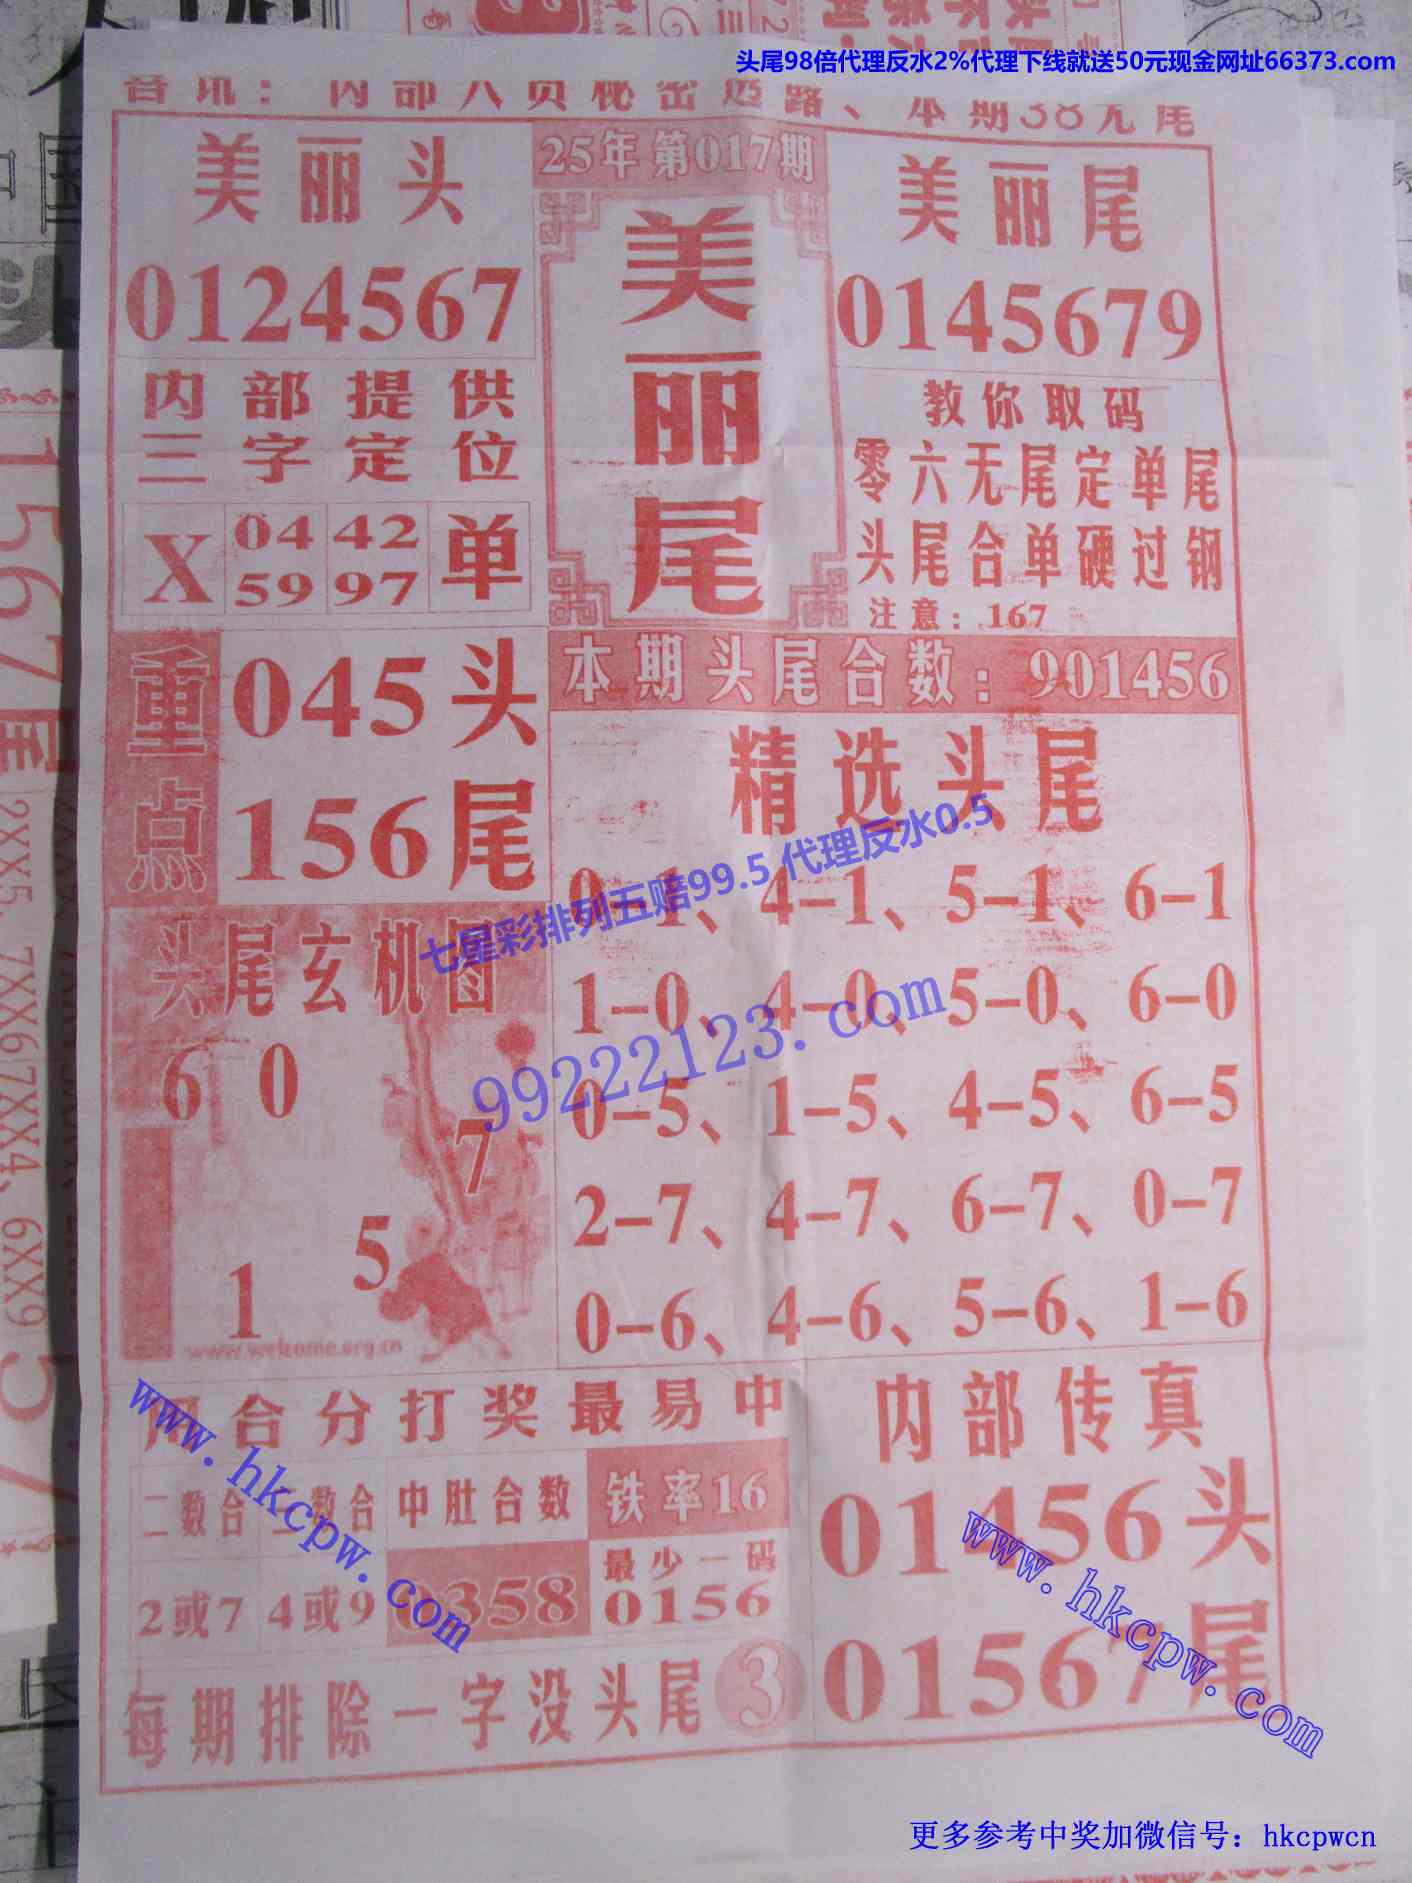 头尾98倍代理反水2%代理下线就送50元现金网址66373.com
音讯：内部人员秘密透露、本期38无尾
美丽头
0124567
25年第017期
美丽尾
美丽尾
0145679
内部提供
三字定位
X 04 42 单
59 97
教你取码
零六无尾定单尾
头尾合单硬过钢
注意：167
重点
045头
156尾
本期头尾合数：901456
精选头尾
0-1、4-1、5-1、6-1
1-0、4-0、5-0、6-0
0-5、1-5、4-5、6-5
2-7、4-7、6-7、0-7
0-6、4-6、5-6、1-6
七星彩排列五赔99.5 代理反水0.5
99222123.com
头尾玄机图
6 0
7
5
1
www.welkome.org.cn
合分打奖最易中
二数合 数合 中肚合数 铁率16
2或7 4或9 0358 最少一码
0156
每期排除一字没头尾 3
内部传真
01456头
01567尾
www.hkcpw.com
www.hkcpw.com
更多参考中奖加微信号：hkcpwcn
1567尾
2XX5、7XX6
7XX4、6XX9